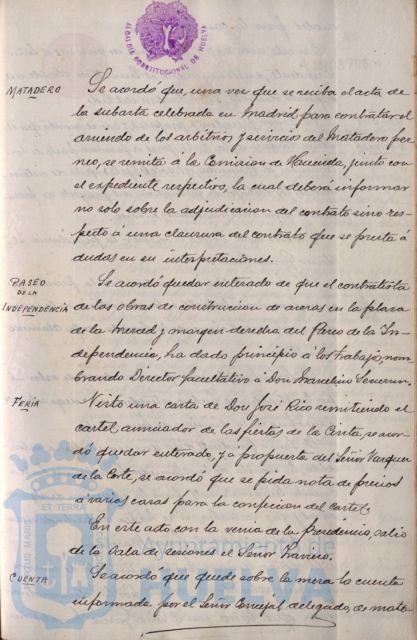 ALCALDÍA CONSTITUCIONAL DE HUELVA
MATADERO
Se acordó que, una vez que se reciba el acta de
la subasta celebrada en Madrid para contratar el
arriendo de los arbitrios y servicios del Matadero por
neo, se remita á la Comision de Hacienda, junto con
el expediente respectivo, la cual deberá informar
no solo sobre la adjudicacion del contrato sino res-
pecto á una clausura del contrato que se presta á
dudas en su interpretaciones.
PASEO
DE LA
INDEPENDENCIA
Se acordó quedar enterado de que el contratista
de las obras de construccion de aceras en la plaza
de la Merced y margen derecha del Paseo de la In-
dependencia, ha dado principio á los trabajos, nom-
brando Director facultativo á Don Marcelino
FERIA
Visto una carta de Don José Rico remitiendo el
cartel anunciador de las fiestas de la Cinta, se acor
dó quedar enterado, y á propuesta del Señor Vazquez
de la Corte, se acordó que se pida nota de precios
á varias casas para la confeccion del cartel.
En este acto con la venia de la Presidencia, salió
de la Sala de sesiones el Señor
CUENTA
Se acordó que quede sobre la mesa la cuenta
informada por el Señor Concejal delegado, de mata-
ET TERRA
Ayuntamiento de
HUELVA